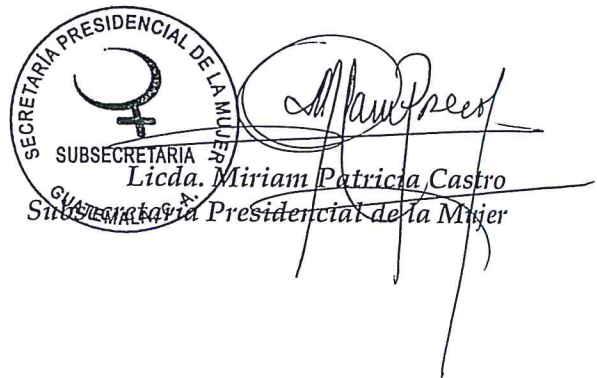 SECRETARÍA PRESIDENCIAL DE LA MUJER
SUBSECRETARIA
GUATEMALA, C. A.
Licda. Miriam Patricia Castro
Subsecretaria Presidencial de la Mujer